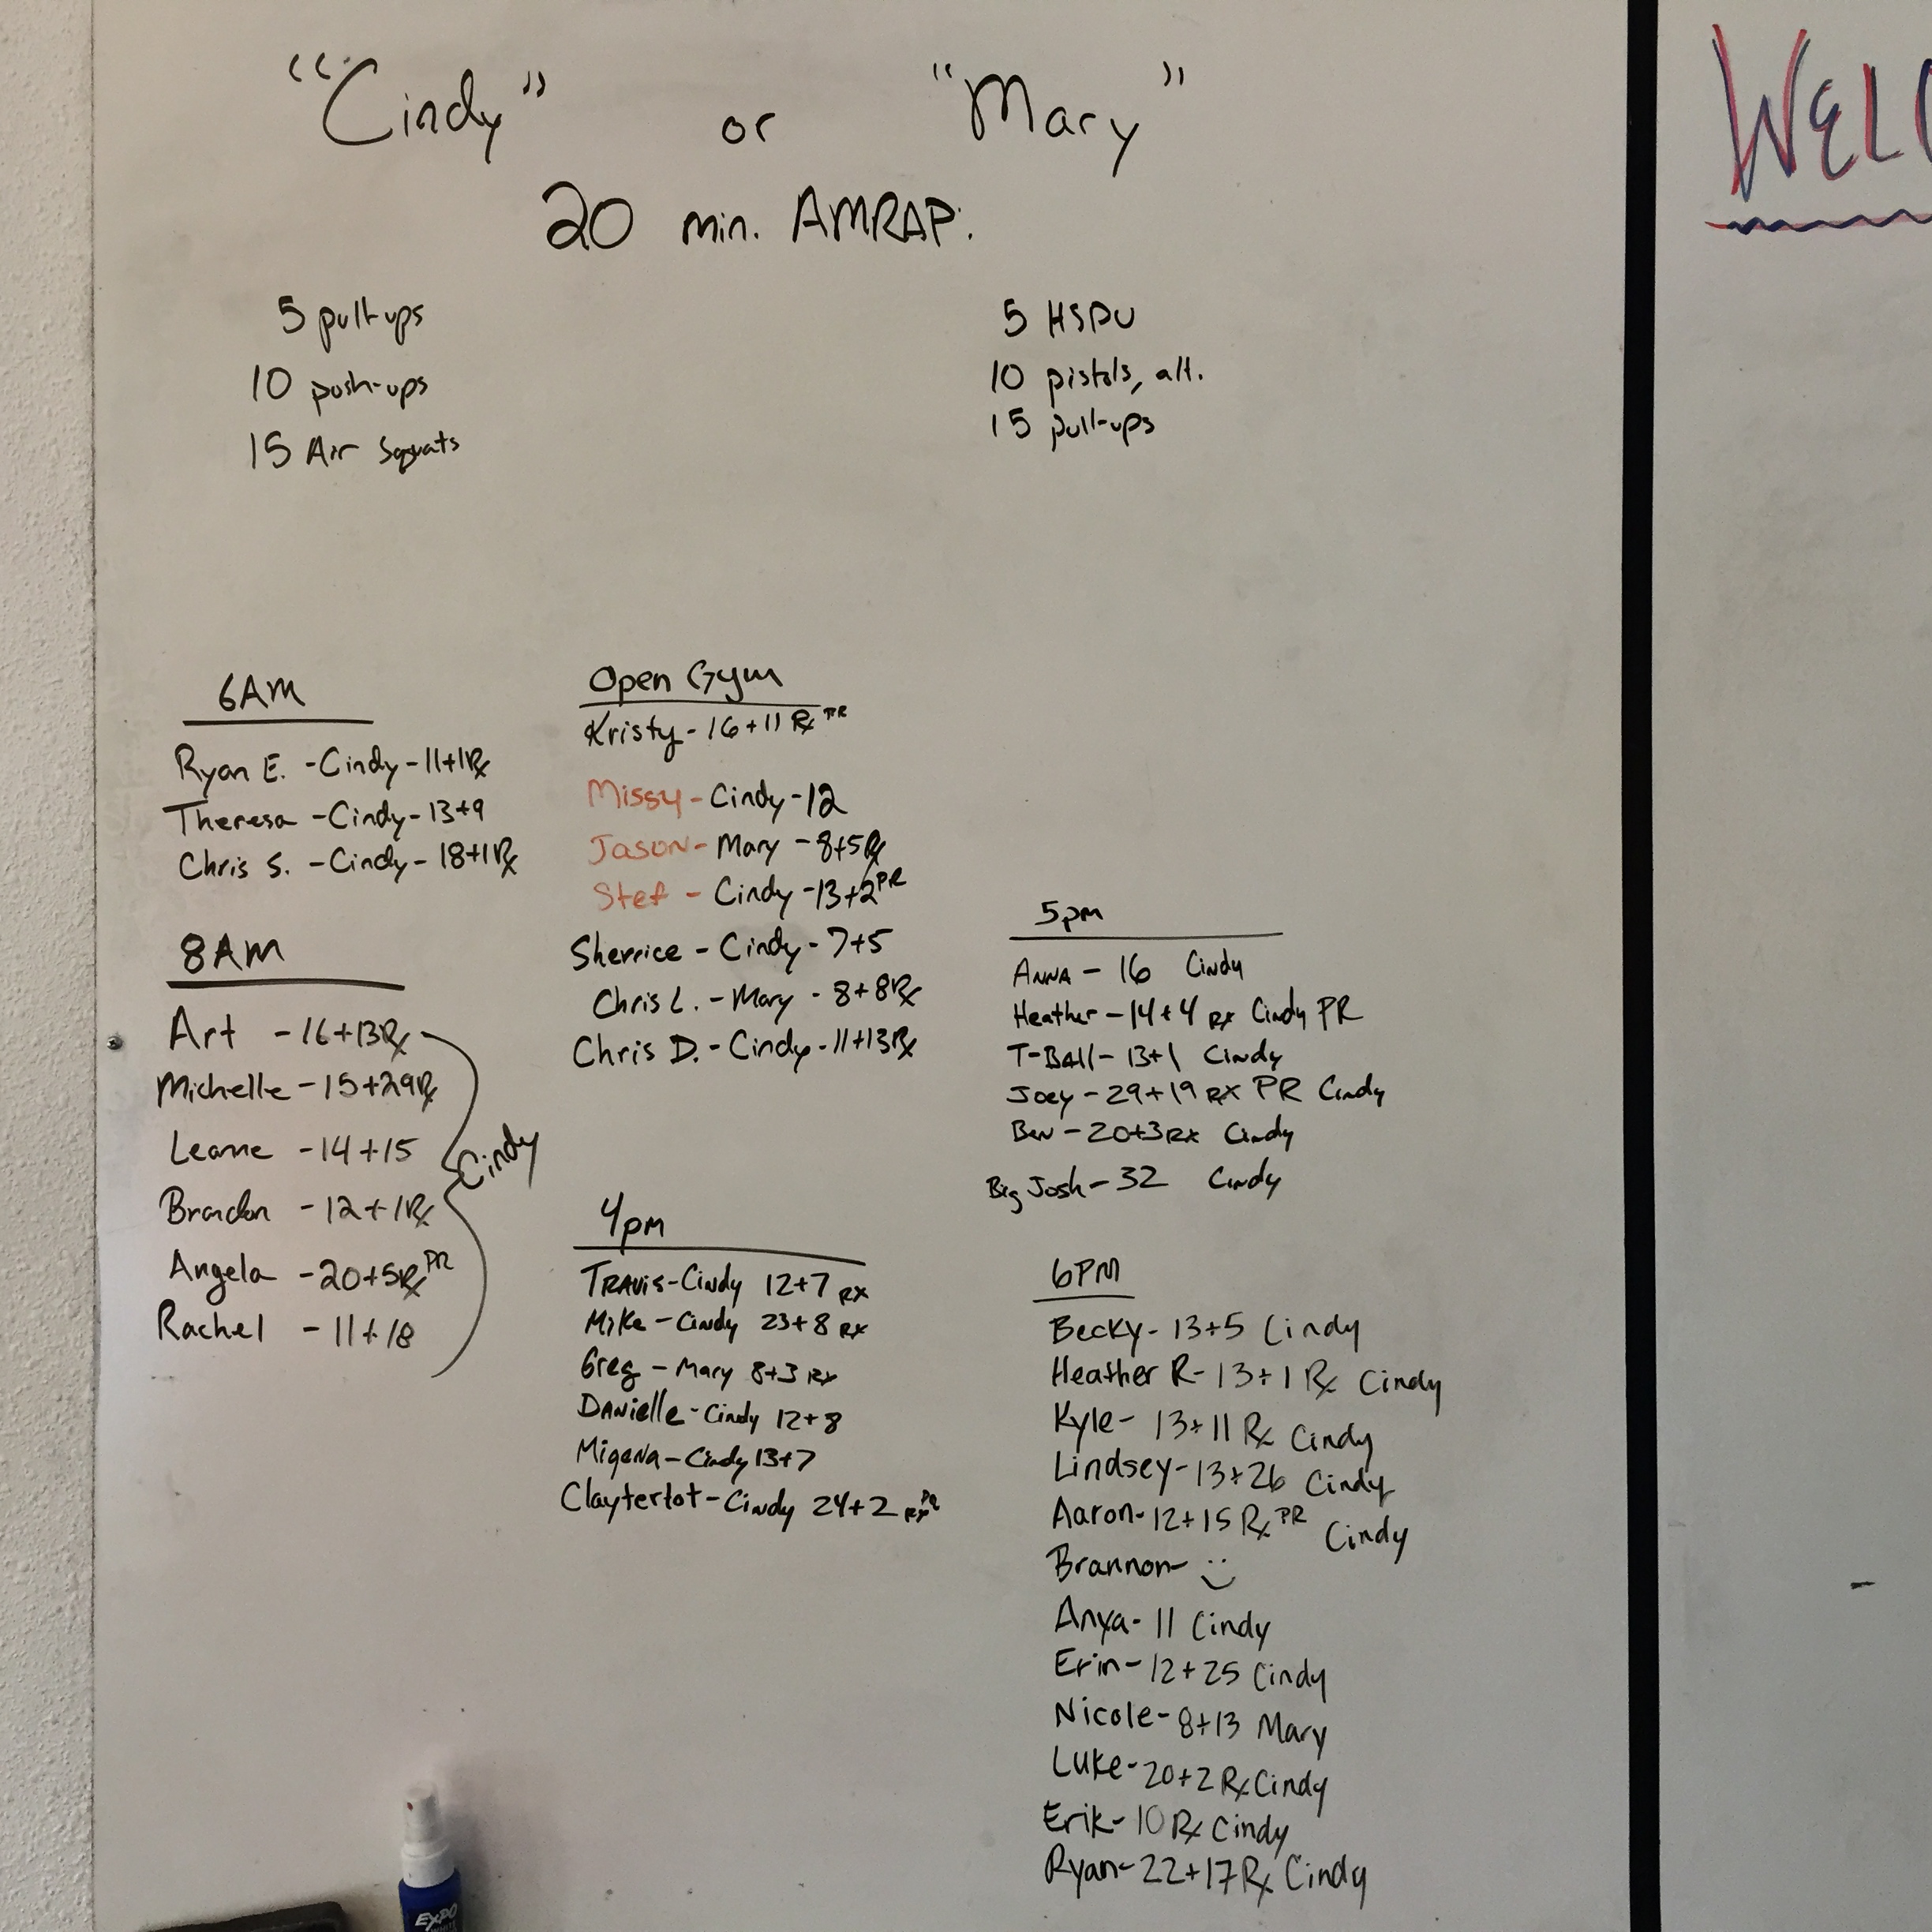 "Cindy" or "Mary"
20 min. AMRAP:
5 pull-ups
10 push-ups
15 Air Squats
5 HSPU
10 pistols, alt.
15 pull-ups
6AM
Ryan E. - Cindy - 11+1 Rx
Theresa - Cindy - 13+9
Chris S. - Cindy - 18+1 Rx
8AM
Art - 16+13 Rx
Michelle - 15+29 Rx
Leanne - 14+15
Brandon - 12+1 Rx
Angela - 20+5 Rx PR
Rachel - 11+18
Cindy
Open Gym
Kristy - 16+11 Rx PR
Missy - Cindy - 12
Jason - Mary - 8+5 Rx
Stef - Cindy - 13+2 PR
Sherrice - Cindy - 7+5
Chris L. - Mary - 8+8 Rx
Chris D. - Cindy - 11+13 Rx
4pm
TRAVIS - Cindy 12+7 RX
Mike - Cindy 23+8 RX
Greg - Mary 8+3 RX
DANielle - Cindy 12+8
Migena - Cindy 13+7
Claytertot - Cindy 24+2 RX PR
5pm
ANNA - 16 Cindy
Heather - 14+4 RX Cindy PR
T-BAll - 13+1 Cindy
Joey - 29+19 RX PR Cindy
Ben - 20+3 RX Cindy
Big Josh - 32 Cindy
6PM
Becky - 13+5 Cindy
Heather R - 13+1 Rx Cindy
Kyle - 13+11 Rx Cindy
Lindsey - 13+26 Cindy
Aaron - 12+15 Rx PR Cindy
Brannon - :)
Anya - 11 Cindy
Erin - 12+25 Cindy
Nicole - 8+13 Mary
Luke - 20+2 Rx Cindy
Erik - 10 Rx Cindy
Ryan - 22+17 Rx Cindy
WELC
EXPO